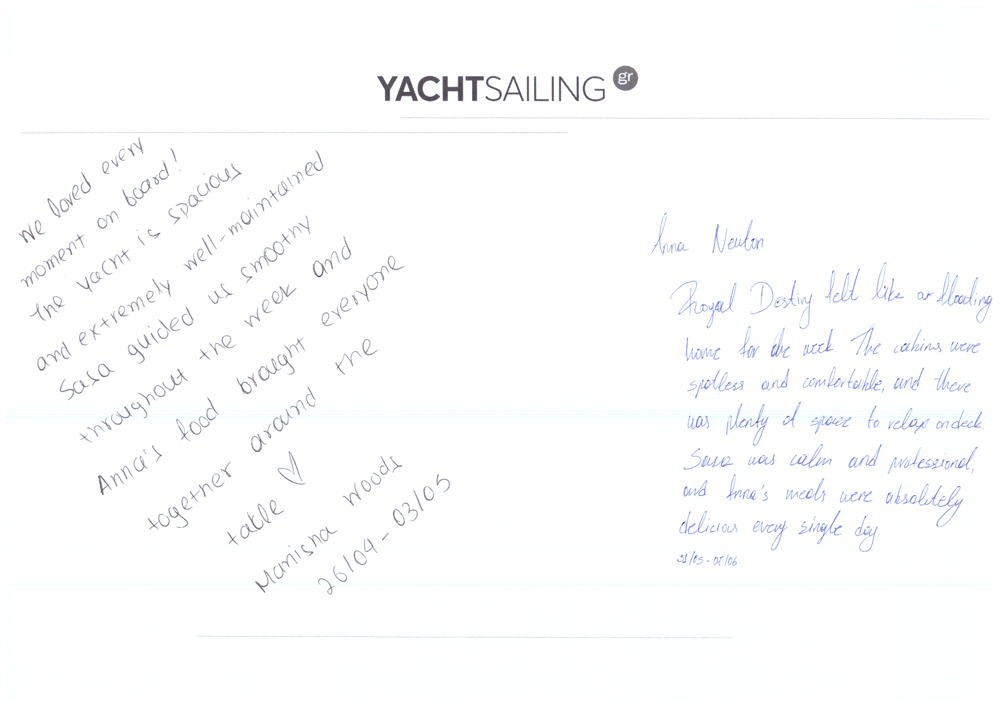 YACHTSAILING gr
We loved every
moment on board!
The yacht is spacious
and extremely well-maintained
Sasa guided us smoothy
throughout the week and
Anna's food brought everyone
together around the
table ♡
Manisha Woods
26/04 - 03/05
Anna Newton
Royal Destiny felt like a floating
home for the week. The cabins were
spotless and comfortable, and there
was plenty of space to relax on deck.
Sasa was calm and professional,
and Anna's meals were absolutely
delicious every single day.